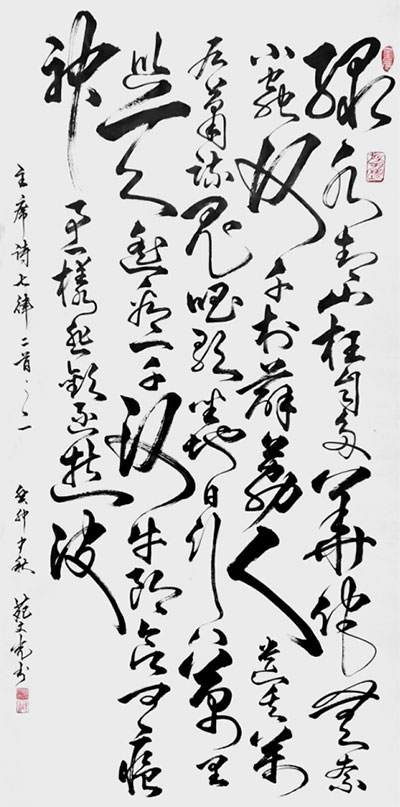 绿水青山枉自多華佗無奈
小蟲何千村薜荔人遗矢萬
户蕭疏鬼唱歌坐地日行八萬里
巡天遥看一千河牛郎欲问瘟
神事一樣悲歡逐逝波
主席诗七律二首之一 癸卯 秋 范 书